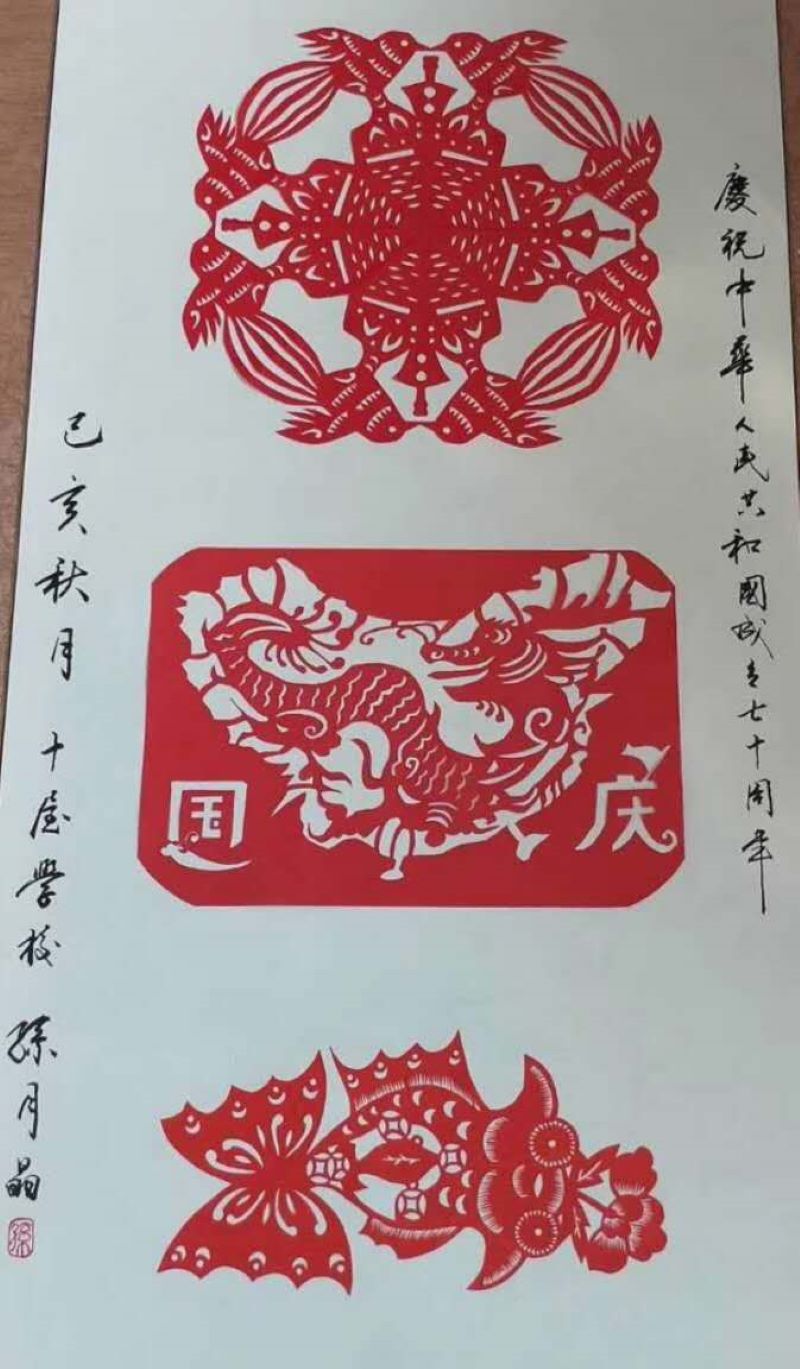 慶祝中華人民共和國成立七十周年
国庆
己亥秋月 十屋學校 孫月晶
孫